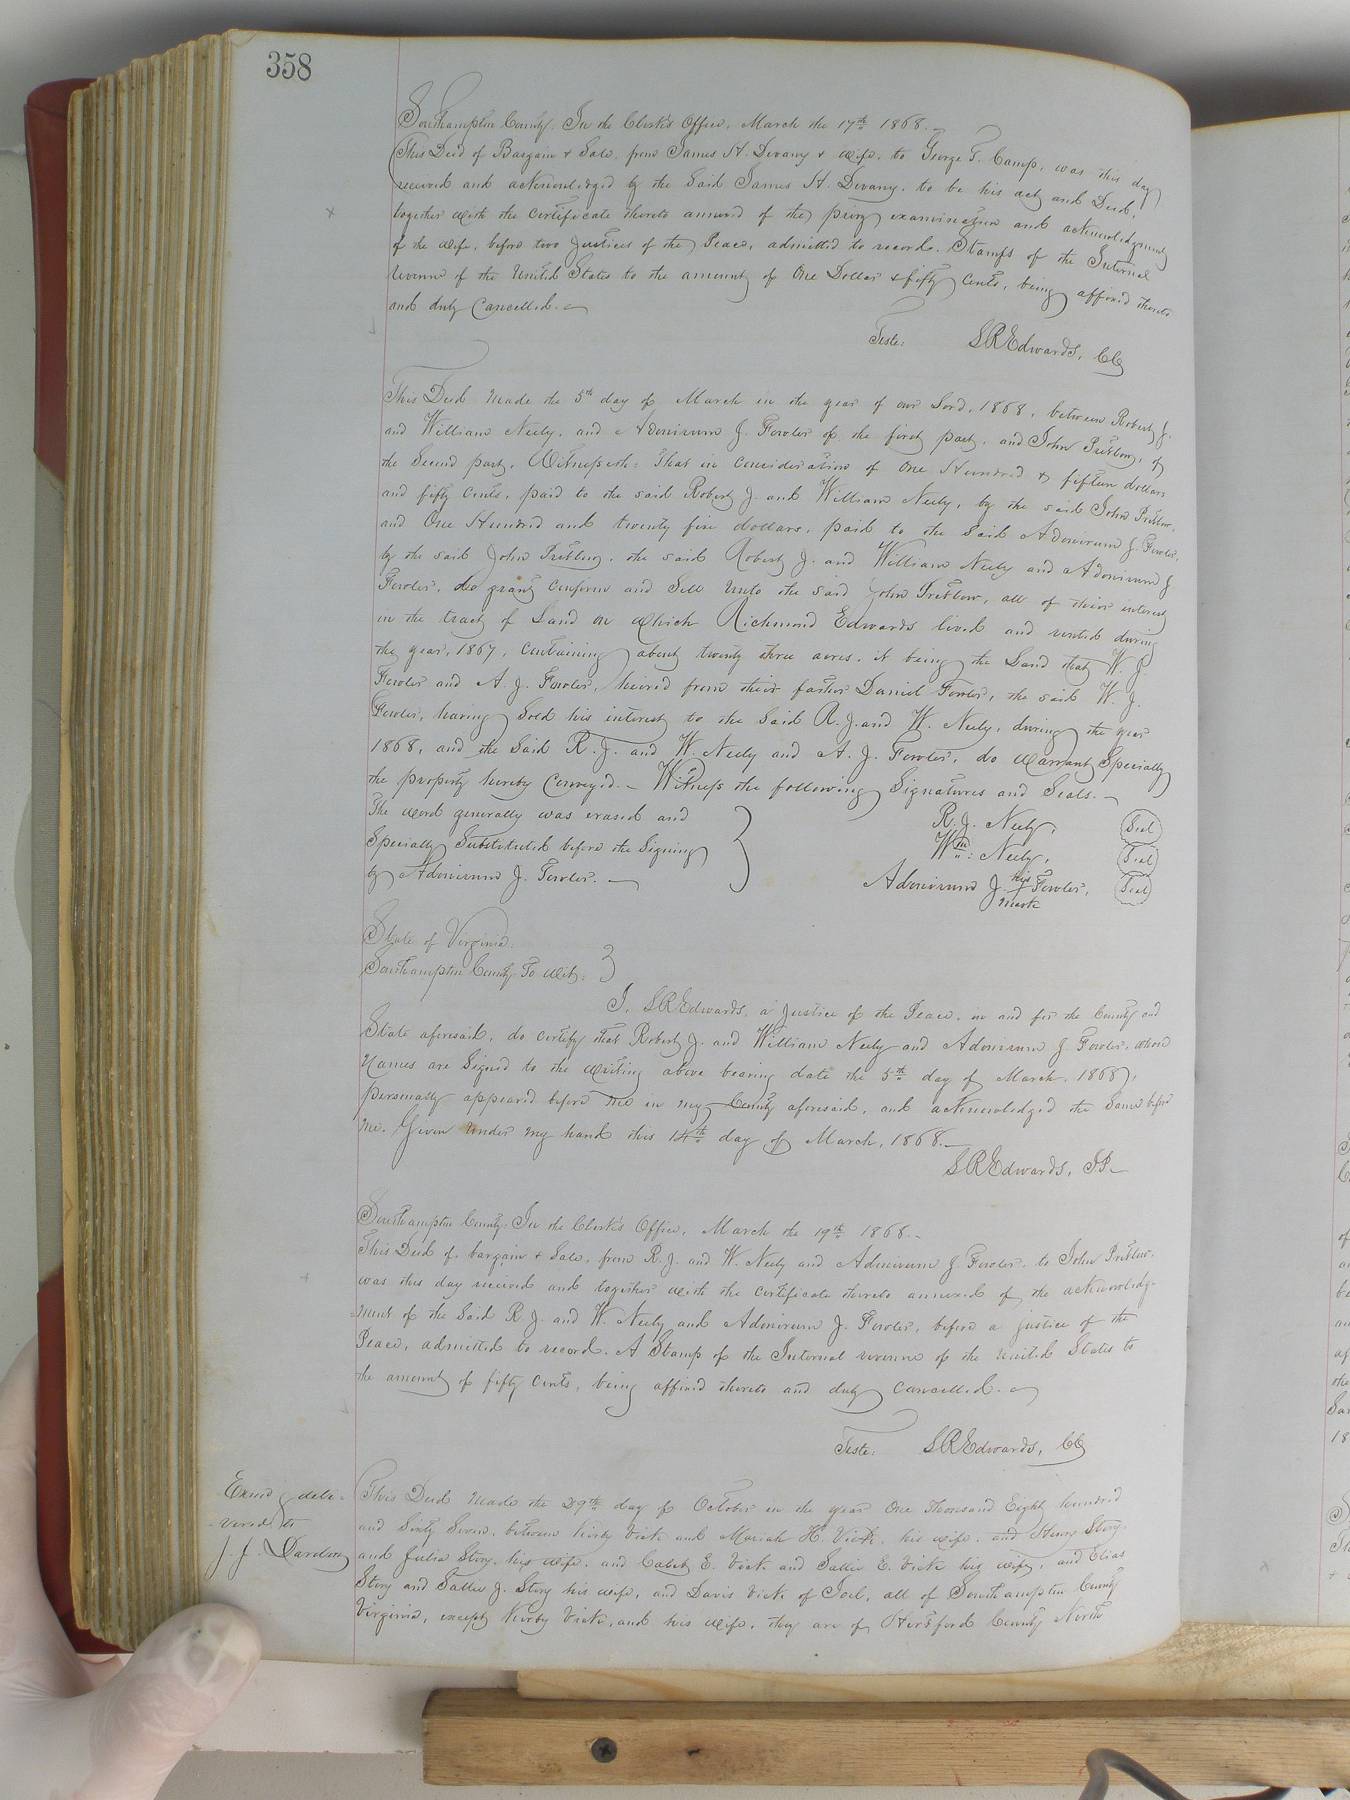 358
Southampton County. In the Clerk's Office, March the 17th 1868.
This Deed of Bargain & Sale, from James H. Devany & wife, to George T. Camp, was this day
received and acknowledged by the said James H. Devany, to be his act and Deed,
together with the certificate thereto annexed of the privy examination and acknowledgment
of the wife, before two Justices of the Peace, admitted to record. Stamps of the Internal
revenue of the United States to the amount of One Dollar & fifty cents, being affixed thereto
and duly Cancelled.
Teste: SREdwards, CC
This Deed Made the 5th day of March in the year of our Lord, 1868, between Robert J.
and William Neely, and Adonirum J. Fowler of the first part, and John Pretlow, of
the Second part, Witnesseth: That in Consideration of One Hundred & fifteen dollars
and fifty cents, paid to the said Robert J. and William Neely, by the said John Pretlow,
and One Hundred and twenty five dollars, paid to the Said Adonirum J. Fowler,
by the said John Pretlow, the said Robert J. and William Neely and Adonirum J
Fowler, do grant Confirm and Sell unto the said John Pretlow, all of their interest
in the tract of Land on Which Richmond Edwards lived and rented during
the year, 1867, Containing about twenty three acres, it being the Land that W. J.
Fowler and A. J. Fowler, heired from their father Daniel Fowler, the said W. J.
Fowler, having Sold his interest to the Said R. J. and W. Neely, during the year
1868, and the Said R. J. and W. Neely and A. J. Fowler, do Warrant Specially
the property hereby Conveyed. Witness the following Signatures and Seals.
The word generally was erased and
Specially Substituted before the Signing
by Adonirum J. Fowler.
R. J. Neely, Seal
Wm: Neely, Seal
Adonirum J. his Fowler, Seal
mark
State of Virginia.
Southampton County To Wit:
I, SREdwards, a Justice of the Peace, in and for the County and
State aforesaid, do certify that Robert J. and William Neely and Adonirum J Fowler, whose
Names are Signed to the Writing above bearing date the 5th day of March, 1868,
personally appeared before me in my County aforesaid, and acknowledged the Same before
Me. Given under my hand this 14th day of March, 1868.
SREdwards, JP
Southampton County: In the Clerk's Office, March the 19th 1868.
This Deed of bargain & Sale, from R. J. and W. Neely and Adonirum J Fowler, to John Pretlow,
was this day received and together with the certificate thereto annexed of the acknowledg-
ment of the Said R. J. and W. Neely and Adonirum J. Fowler, before a justice of the
Peace, admitted to record. A Stamp of the Internal revenue of the United States to
the amount of fifty Cents, being affixed thereto and duly Cancelled.
Teste: SREdwards, CC
Exmd & deli-
vered to
J. J. Dardon
This Deed Made the 29th day of October in the year One Thousand Eight hundred
and Sixty Seven, between Kirby Vick and Mariah H. Vick, his wife, and Henry Story,
and Julia Story, his wife, and Caleb E. Vick and Sallie E. Vick his wife, and Elias
Story and Sallie J. Story his wife, and Davis Vick of Joel, all of Southampton County
Virginia, except Kirby Vick, and his wife, they are of Hertford County North